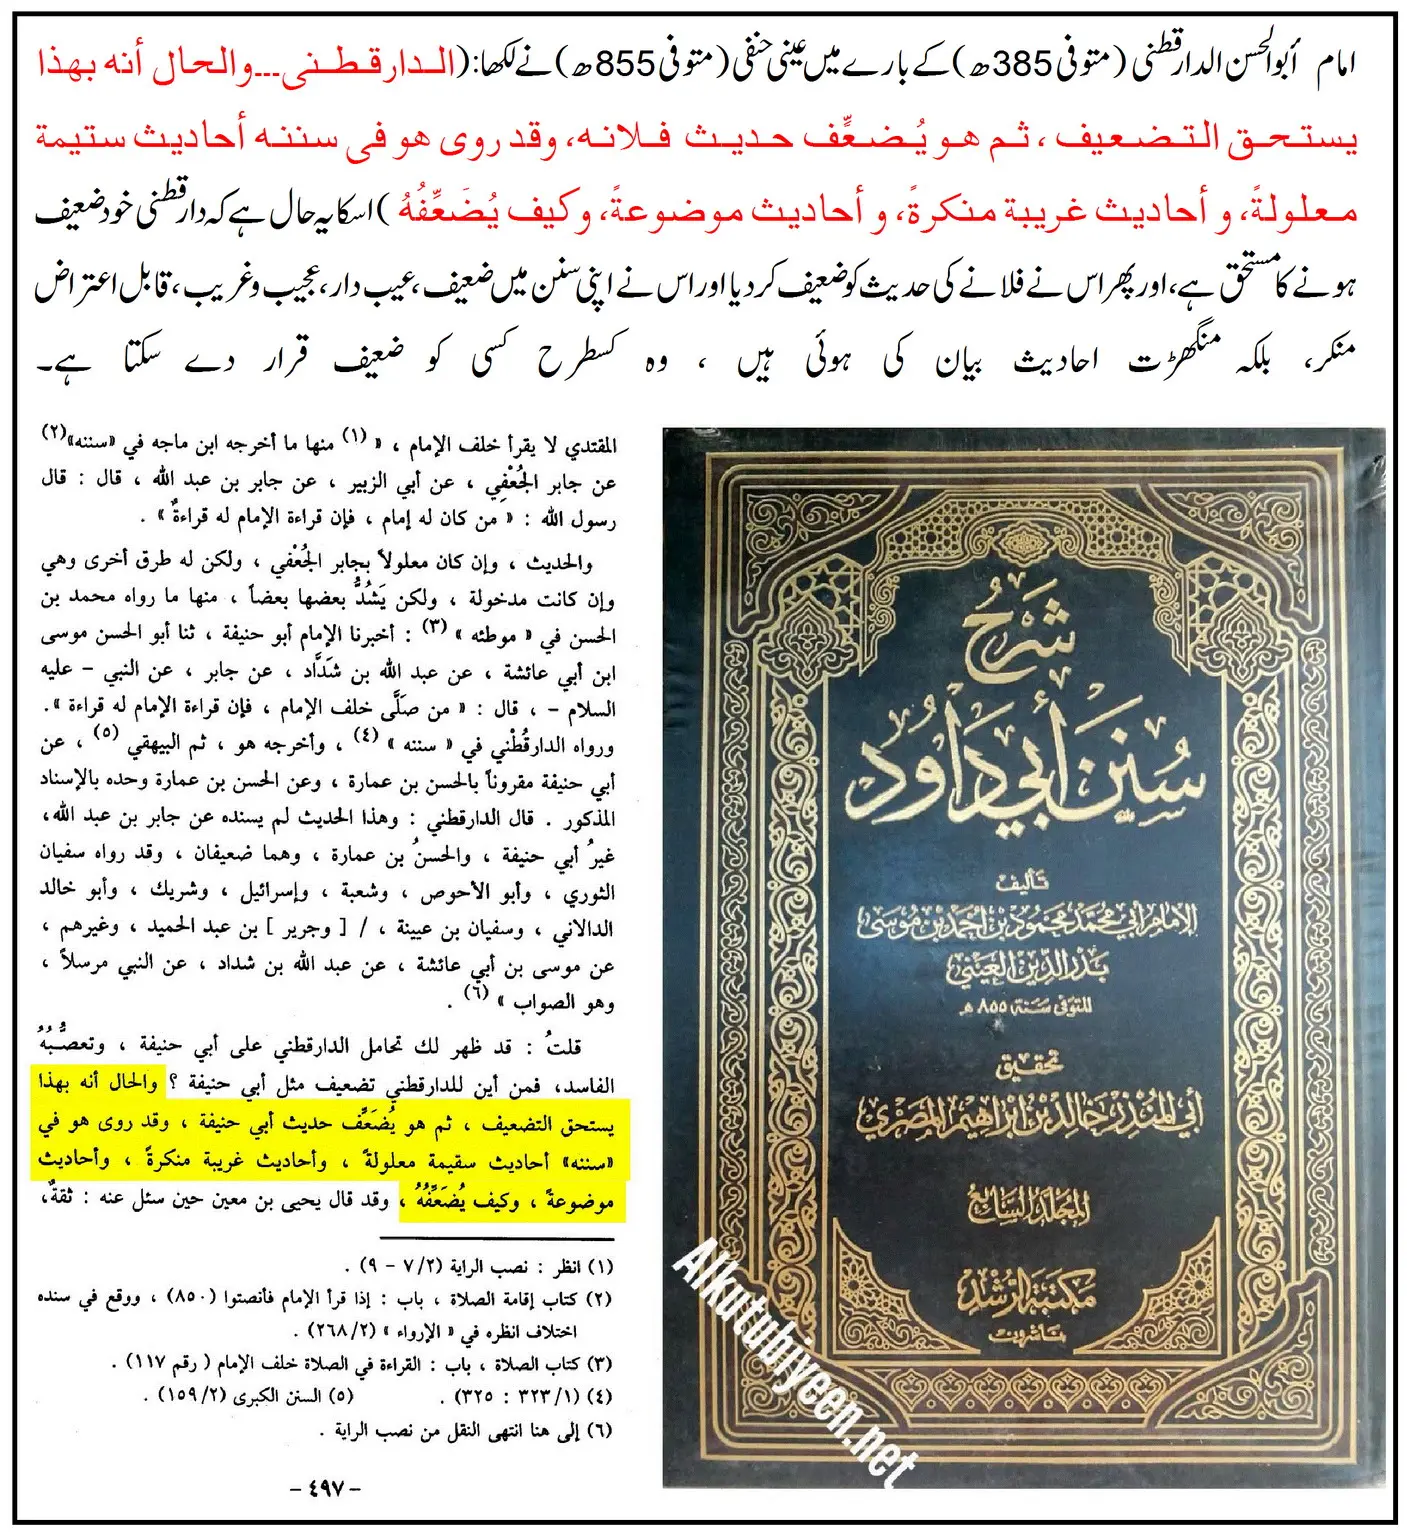 امام أبوالحسن الدارقطنی (متوفی 385ھ) کے بارے میں عینی حنفی (متوفی 855ھ) نے لکھا: (الدارقطنی---والحال أنه بهذا
يستحق التضعيف ، ثم هو يُضعٍّف حديث فلانه، وقد روى هو فى سننه أحاديث ستيمة
معلولةً، و أحاديث غريبة منكرةً، و أحاديث موضوعةً، وكيف يُضَعِّفُهُ) اسکا یہ حال ہے کہ دارقطنی خود ضعیف
ہونے کا مستحق ہے، اور پھر اس نے فلانے کی حدیث کو ضعیف کر دیا اور اس نے اپنی سنن میں ضعیف ، عیب دار، عجیب و غریب، قابل اعتراض
منکر، بلکہ منگھڑت احادیث بیان کی ہوئی ہیں ، وہ کسطرح کسی کو ضعیف قرار دے سکتا ہے۔
المقتدي لا يقرأ خلف الإمام ، « (١) منها ما أخرجه ابن ماجه في «سننه»(٢)
عن جابر الجُعْفِي ، عن أبي الزبير ، عن جابر بن عبد الله ، قال : قال
رسول الله : « من كان له إمام ، فإن قراءة الإمام له قراءةٌ » .
والحديث ، وإن كان معلولاً بجابر الجُعْفي ، ولكن له طرق أخرى وهي
وإن كانت مدخولة ، ولكن يَشُدُّ بعضها بعضاً ، منها ما رواه محمد بن
الحسن في « موطئه » (٣) : أخبرنا الإمام أبو حنيفة ، ثنا أبو الحسن موسى
ابن أبي عائشة ، عن عبد الله بن شَدَّاد ، عن جابر ، عن النبي – عليه
السلام – ، قال : « من صَلَّى خلف الإمام ، فإن قراءة الإمام له قراءة ».
ورواه الدارقُطْني في « سننه » (٤) ، وأخرجه هو ، ثم البيهقي (٥) ، عن
أبي حنيفة مقروناً بالحسن بن عمارة ، وعن الحسن بن عمارة وحده بالإسناد
المذكور . قال الدارقطني : وهذا الحديث لم يسنده عن جابر بن عبد الله،
غيرُ أبي حنيفة ، والحسنُ بن عمارة ، وهما ضعيفان ، وقد رواه سفيان
الثوري ، وأبو الأحوص ، وشعبة ، وإسرائيل ، وشريك ، وأبو خالد
الدالاني ، وسفيان بن عيينة ، / [ وجرير ] بن عبد الحميد ، وغيرهم ،
عن موسى بن أبي عائشة ، عن عبد الله بن شداد ، عن النبي مرسلاً ،
وهو الصواب » (٦) .
قلتُ : قد ظهر لك تحامل الدارقطني على أبي حنيفة ، وتعصُّبُهُ
الفاسد، فمن أين للدارقطني تضعيف مثل أبي حنيفة ؟ والحال أنه بهذا
يستحق التضعيف ، ثم هو يُضَعِّف حديث أبي حنيفة ، وقد روى هو في
«سننه» أحاديث سقيمة معلولةً ، وأحاديث غريبة منكرةً ، وأحاديث
موضوعةً ، وكيف يُضَعِّفُهُ ، وقد قال يحيى بن معين حين سئل عنه : ثقةٌ،
(١) انظر : نصب الراية (٢/ ٧ – ٩) .
(٢) كتاب إقامة الصلاة ، باب : إذا قرأ الإمام فأنصتوا (٨٥٠) ، ووقع في سنده
اختلاف انظره في « الإرواء » (٢/ ٢٦٨) .
(٣) كتاب الصلاة ، باب : القراءة في الصلاة خلف الإمام ( رقم ١١٧) .
(٤) (١/ ٣٢٣ : ٣٢٥) . (٥) السنن الكبرى (٢/ ١٥٩) .
(٦) إلى هنا انتهى النقل من نصب الراية .
– ٤٩٧ –
شَرْحُ
سُنَن أَبِي دَاوُد
تأليف
الإمام أبي محمد محمود بن أحمد بن موسى
بدر الدين العيني
المتوفى سنة ٨٥٥ هـ
تحقيق
أبي المنذر خالد بن إبراهيم المصري
المجلد السابع
مكتبة الرشد
ناشرون
Alkutubiyeen.net